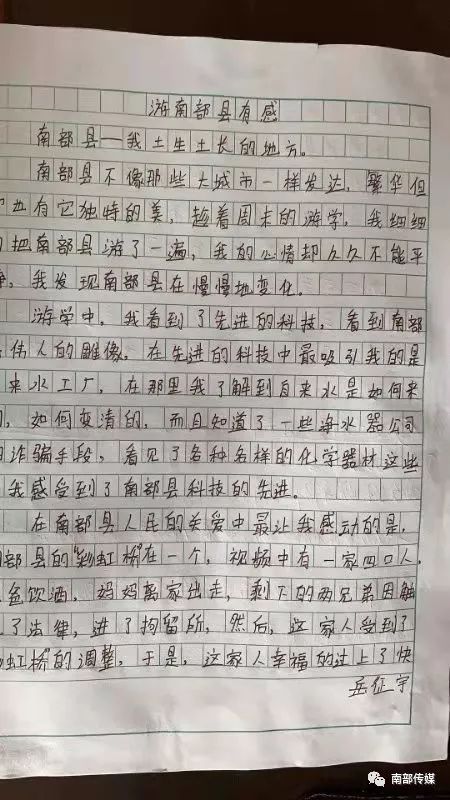 游南部县有感
南部县—我土生土长的地方。
南部县不像那些大城市一样发达，繁华但
也有它独特的美，趁着周末的游学，我细细
把南部县游了一遍，我的心情却久久不能平
，我发现南部县在慢慢地变化。
游学中，我看到了先进的科技，看到南部
伟人的雕像，在先进的科技中最吸引我的是
来水工厂，在那里我了解到自来水是如何来
，如何变清的，而且知道了一些净水器公司
诈骗手段，看见了各种各样的化学器材这些
我感受到了南部县科技的先进。
在南部县人民的关爱中最让我感动的是，
部县的“彩虹桥”在一个，视频中有一家四口人，
爸饮酒，妈妈离家出走，剩下的两兄弟因触
了法律，进了拘留所，然后，这家人受到了
虹桥”的调整，于是，这家人幸福的过上了快
岳征宇
南部传媒